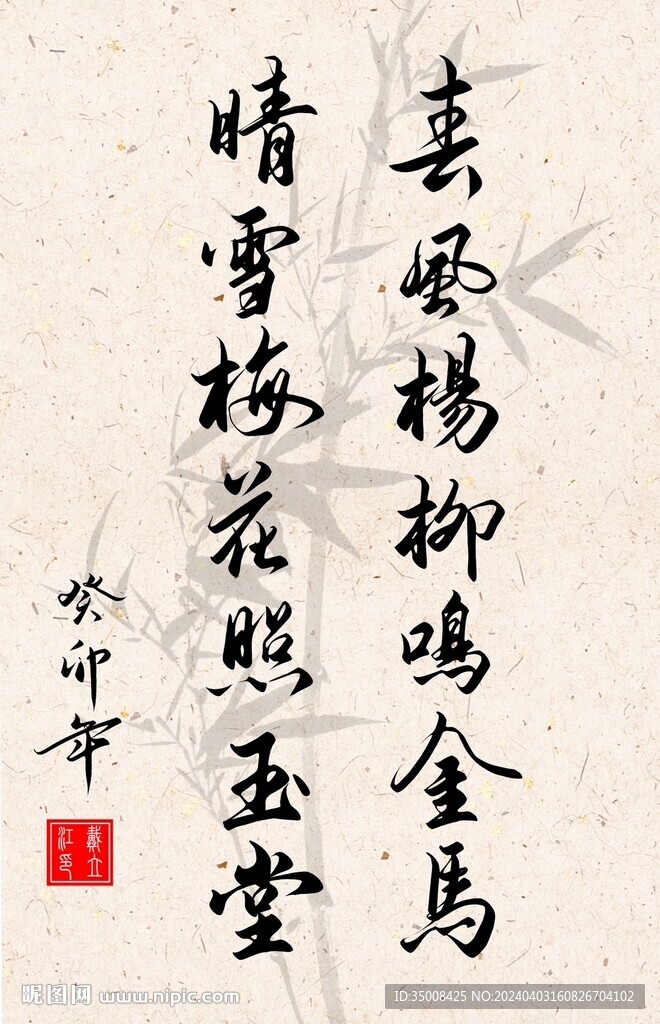 春風楊柳鳴金馬
晴雪梅花照玉堂
癸卯年
戴立
江印
昵图网 www.nipic.com
ID:35008425 NO:20240403160826704102